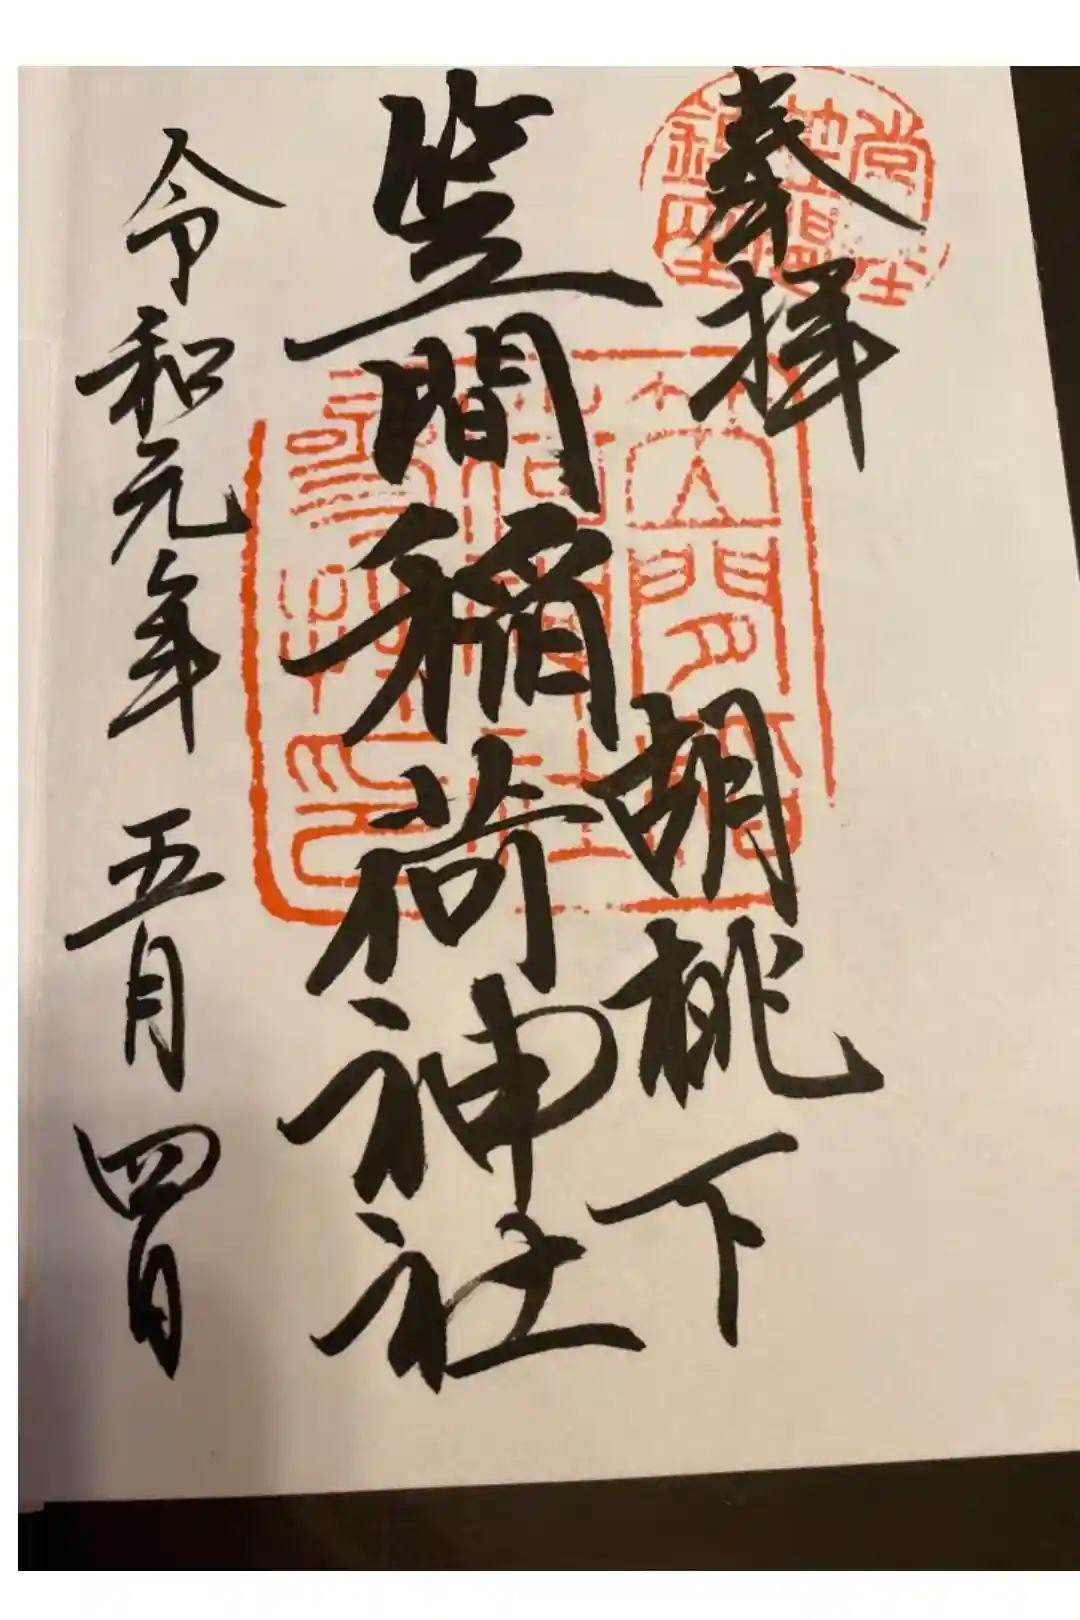 奉拝
胡桃下
笠間稲荷神社
令和元年五月四日